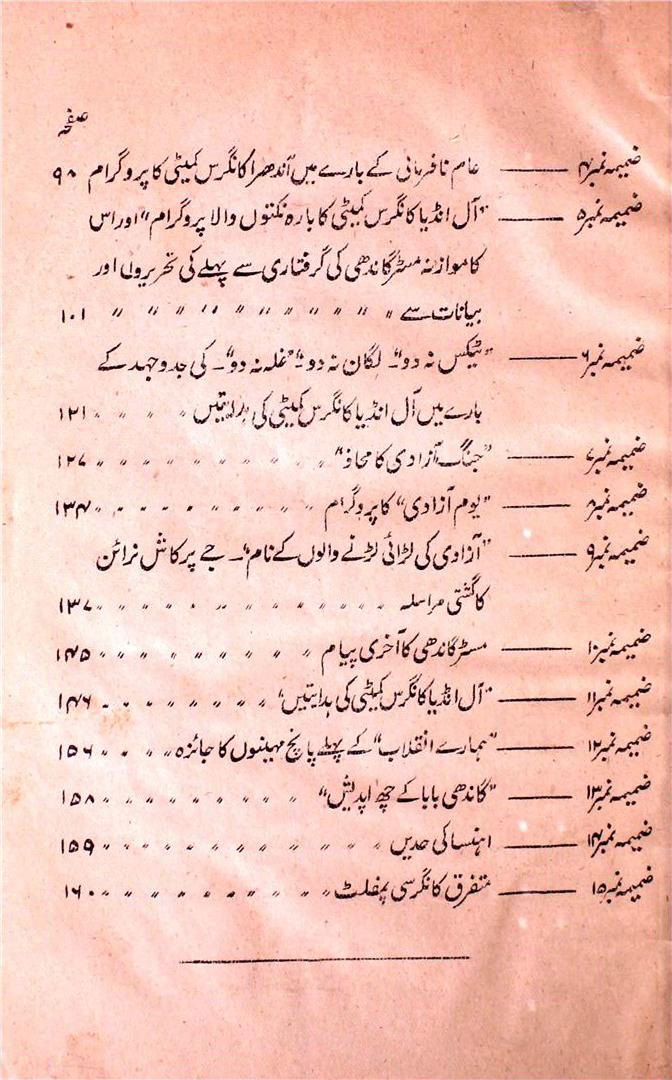 صفحہ
ضمیمہ نمبر۴ ——— عام نافرمانی کے بارے میں آندھرا کانگرس کمیٹی کا پروگرام ۹۸
ضمیمہ نمبر۵ ——— "آل انڈیا کانگرس کمیٹی کا بارہ نکتوں والا پروگرام" اور اس
کا موازنہ مسٹر گاندھی کی گرفتاری سے پہلے کی تحریروں اور
بیانات سے " " " " " " " " " " " ۱۰۱
ضمیمہ نمبر۶ ——— "ٹیکس نہ دو"۔ لگان نہ دو"۔ "غلہ نہ دو"۔ کی جدوجہد کے
بارے میں آل انڈیا کانگرس کمیٹی کی ہدایتیں " " " " ۱۲۱
ضمیمہ نمبر۷ ——— "جنگ آزادی کا محاذ" " " " " " " " " " ۱۲۷
ضمیمہ نمبر۸ ——— "یوم آزادی" کا پروگرام " " " " " " " " " ۱۳۴
ضمیمہ نمبر۹ ——— "آزادی کی لڑائی لڑنے والوں کے نام"۔ جے پرکاش نرائن
کا گشتی مراسلہ " " " " " " " " " " " ۱۳۷
ضمیمہ نمبر۱۰ ——— مسٹر گاندھی کا آخری پیام " " " " " " " " " ۱۴۵
ضمیمہ نمبر۱۱ ——— "آل انڈیا کانگرس کمیٹی کی ہدایتیں" " " " " " " " ۱۴۶
ضمیمہ نمبر۱۲ ——— "ہمارے انقلاب" کے پہلے پانچ مہینوں کا جائزہ " " " " ۱۵۶
ضمیمہ نمبر۱۳ ——— "گاندھی بابا کے چھ اپدیش" " " " " " " " " " ۱۵۸
ضمیمہ نمبر۱۴ ——— اہنسا کی حدیں " " " " " " " " " " " ۱۵۹
ضمیمہ نمبر۱۵ ——— متفرق کانگرسی پمفلٹ " " " " " " " " " ۱۶۰